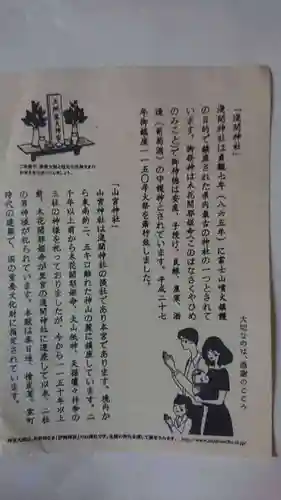 「浅間神社」
浅間神社は貞観七年(八六五年)に富士山噴火鎮護
の目的で鎮座された県内最古の神社の一つとされて
います。御祭神は木花開耶姫命(このはなさくやひめ
のみこと)で御神徳は安産、子授け、良縁、農業、酒
造(葡萄酒)の守護神とされています。平成二十七
年御鎮座一一五〇年大祭を斎行致しました。
「山宮神社」
山宮神社は浅間神社の摂社であり本宮であります。境内か
ら東南約二、五キロ離れた神山の麓に鎮座しています。二
千年以上前から木花開耶姫命、大山祇神、天孫瓊々杵命の
三社の神様を祀っておりましたが、今から一一五十年以上
前、木花開耶姫命が里宮の浅間神社に遷座して以来、二柱
の男神様が祀られています。本殿は春日造、檜皮葺、室町
時代の建築で、国の重要文化財に指定されています。
大切なのは、感謝のこころ